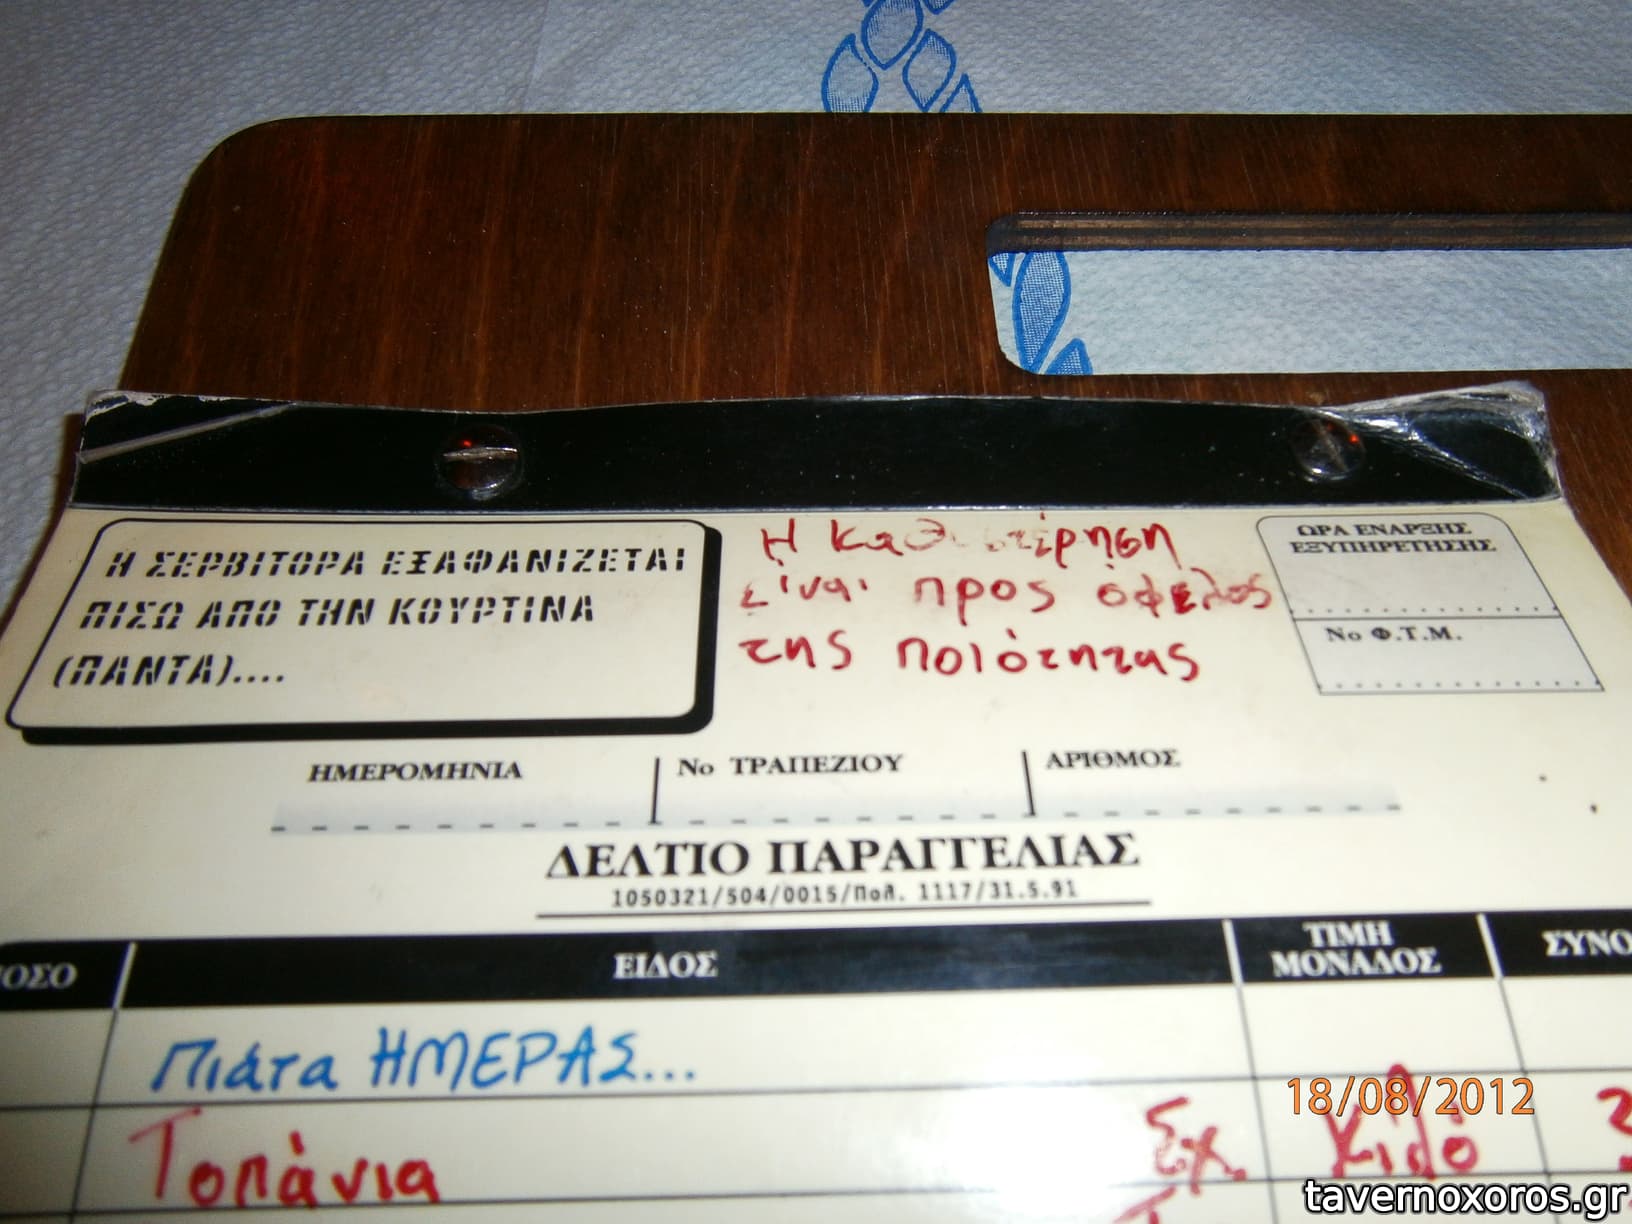 Η ΣΕΡΒΙΤΟΡΑ ΕΞΑΦΑΝΙΖΕΤΑΙ
ΠΙΣΩ ΑΠΟ ΤΗΝ ΚΟΥΡΤΙΝΑ
(ΠΑΝΤΑ)....
Η καθυστέρηση
είναι προς όφελος
της ποιότητας
ΩΡΑ ΕΝΑΡΞΗΣ
ΕΞΥΠΗΡΕΤΗΣΗΣ
Νο Φ.Τ.Μ.
ΗΜΕΡΟΜΗΝΙΑ Νο ΤΡΑΠΕΖΙΟΥ ΑΡΙΘΜΟΣ
ΔΕΛΤΙΟ ΠΑΡΑΓΓΕΛΙΑΣ
1050321/504/0015/Πολ. 1117/31.5.91
ΟΣΟ ΕΙΔΟΣ ΤΙΜΗ ΜΟΝΑΔΟΣ ΣΥΝΟ
Πιάτα ΗΜΕΡΑΣ...
18/08/2012
Τοπάνια Εχ. κιλό
tavernoxoros.gr